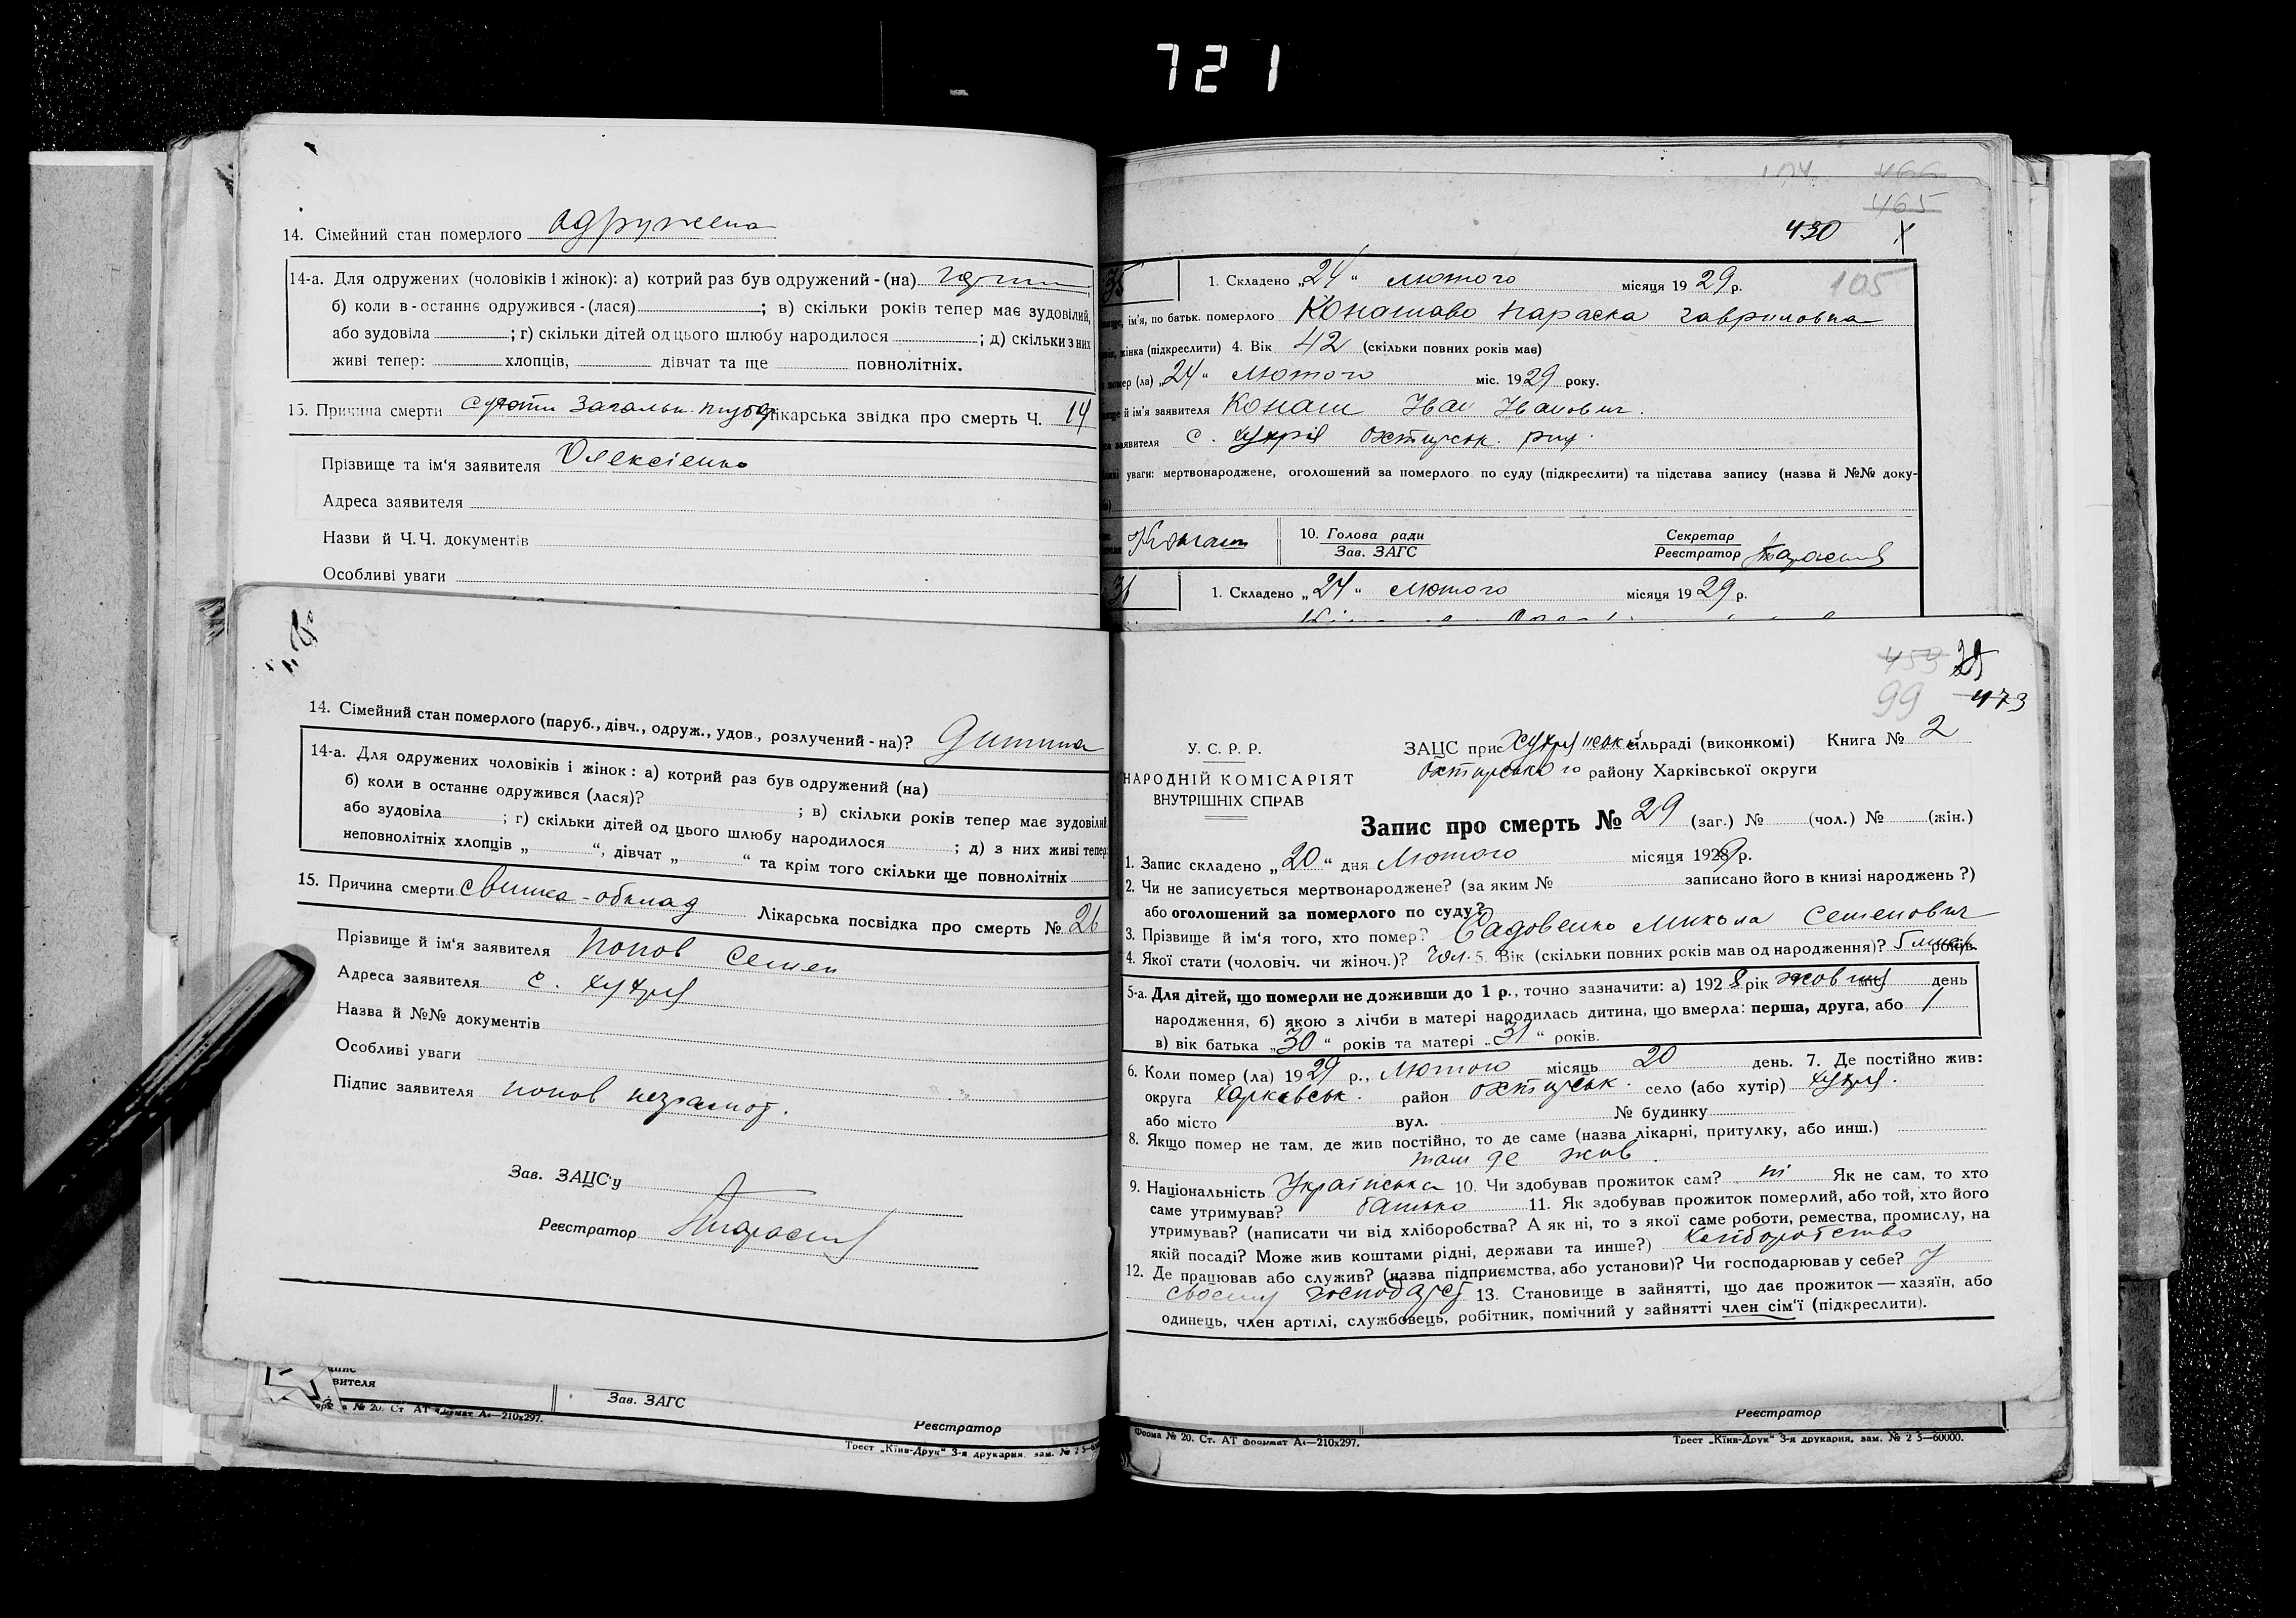 721
14. Сімейний стан померлого одружена
14-а. Для одружених (чоловіків і жінок): а) котрий раз був одружений-(на)
б) коли в-останнє одружився-(лася) ; в) скільки років тепер має зудовілий,
або зудовіла ; г) скільки дітей од цього шлюбу народилося ; д) скільки з них
живі тепер: хлопців, дівчат та ще повнолітніх.
15. Причина смерти лікарська звідка про смерть Ч. 14
Прізвище та ім'я заявителя Олексієнко
Адреса заявителя
Назви й Ч.Ч. документів
Особливі уваги
14. Сімейний стан померлого (паруб., дівч., одруж., удов., розлучений-на)? Дитина
14-а. Для одружених чоловіків і жінок: а) котрий раз був одружений (на)
б) коли в останнє одружився (лася)? ; в) скільки років тепер має зудовілий
або зудовіла ; г) скільки дітей од цього шлюбу народилося ; д) з них живі тепер:
неповнолітніх хлопців „ “, дівчат „ “ та крім того скільки ще повнолітніх
15. Причина смерти свинка-обклад Лікарська посвідка про смерть № 26
Прізвище й ім'я заявителя Попов Семен
Адреса заявителя с. Хухря
Назва й №№ документів
Особливі уваги
Підпис заявителя попов неграмот.
Зав. ЗАЦС'у
Реєстратор
вителя
Зав. ЗАГС
№ 20. Ст. АТ формат А4—210х297.
Реєстратор
Трест „Київ-Друк“ 3-я друкарня, зам. № 2 5—
466
465
430
105
35 1. Складено „24“ лютого місяця 1929 р.
ім'я, по батьк. померлого Конашова Параска Гавриловна
жінка (підкреслити) 4. Вік 42 (скільки повних років має)
помер (ла) „24“ лютого міс. 1929 року.
й ім'я заявителя Конаш Іван Іванович.
заявителя с. Хухря Охтирськ. рну.
уваги: мертвонароджене, оголошений за померлого по суду (підкреслити) та підстава запису (назва й №№ доку-
Конаш 10. Голова ради Секретар
Зав. ЗАГС Реєстратор
36 1. Складено „24“ лютого місяця 1929 р.
453
99 473
У. С. Р. Р.
НАРОДНІЙ КОМІСАРІЯТ
ВНУТРІШНІХ СПРАВ
ЗАЦС при Хухрянській сільраді (виконкомі) Книга № 2
Охтирського району Харківської округи
Запис про смерть № 29 (заг.) № (чол.) № (жін.)
1. Запис складено „20“ дня Лютого місяця 1929 р.
2. Чи не записується мертвонароджене? (за яким № записано його в книзі народжень?)
або оголошений за померлого по суду?
3. Прізвище й ім'я того, хто помер? Садовенко Микола Семенович
4. Якої стати (чоловіч. чи жіноч.)? Чол. 5. Вік (скільки повних років мав од народження)? 5 років
5-а. Для дітей, що померли не доживши до 1 р., точно зазначити: а) 1928 рік жовт день
народження, б) якою з лічби в матері народилась дитина, що вмерла: перша, друга, або 1
в) вік батька „30“ років та матері „31“ років.
6. Коли помер (ла) 1929 р., Лютого місяць 20 день. 7. Де постійно жив:
округа Харківськ. район Охтирськ. село (або хутір) Хухря.
або місто вул. № будинку
8. Якщо помер не там, де жив постійно, то де саме (назва лікарні, притулку, або инш.)
там де жив.
9. Національність Українська 10. Чи здобував прожиток сам? ні Як не сам, то хто
саме утримував? батько 11. Як здобував прожиток померлий, або той, хто його
утримував? (написати чи від хліборобства? А як ні, то з якої саме роботи, ремества, промислу, на
якій посаді? Може жив коштами рідні, держави та инше?) Хліборобство
12. Де працював або служив? (назва підприємства, або установи)? Чи господарював у себе? у
своєму господарс 13. Становище в зайнятті, що дає прожиток — хазяїн, або
одинець, член артілі, службовець, робітник, помічний у зайнятті член сім'ї (підкреслити).
Реєстратор
Форма № 20. Ст. АТ формат А4—210х297.
Трест „Київ-Друк“ 3-я друкарня, зам. № 2 5—60000.